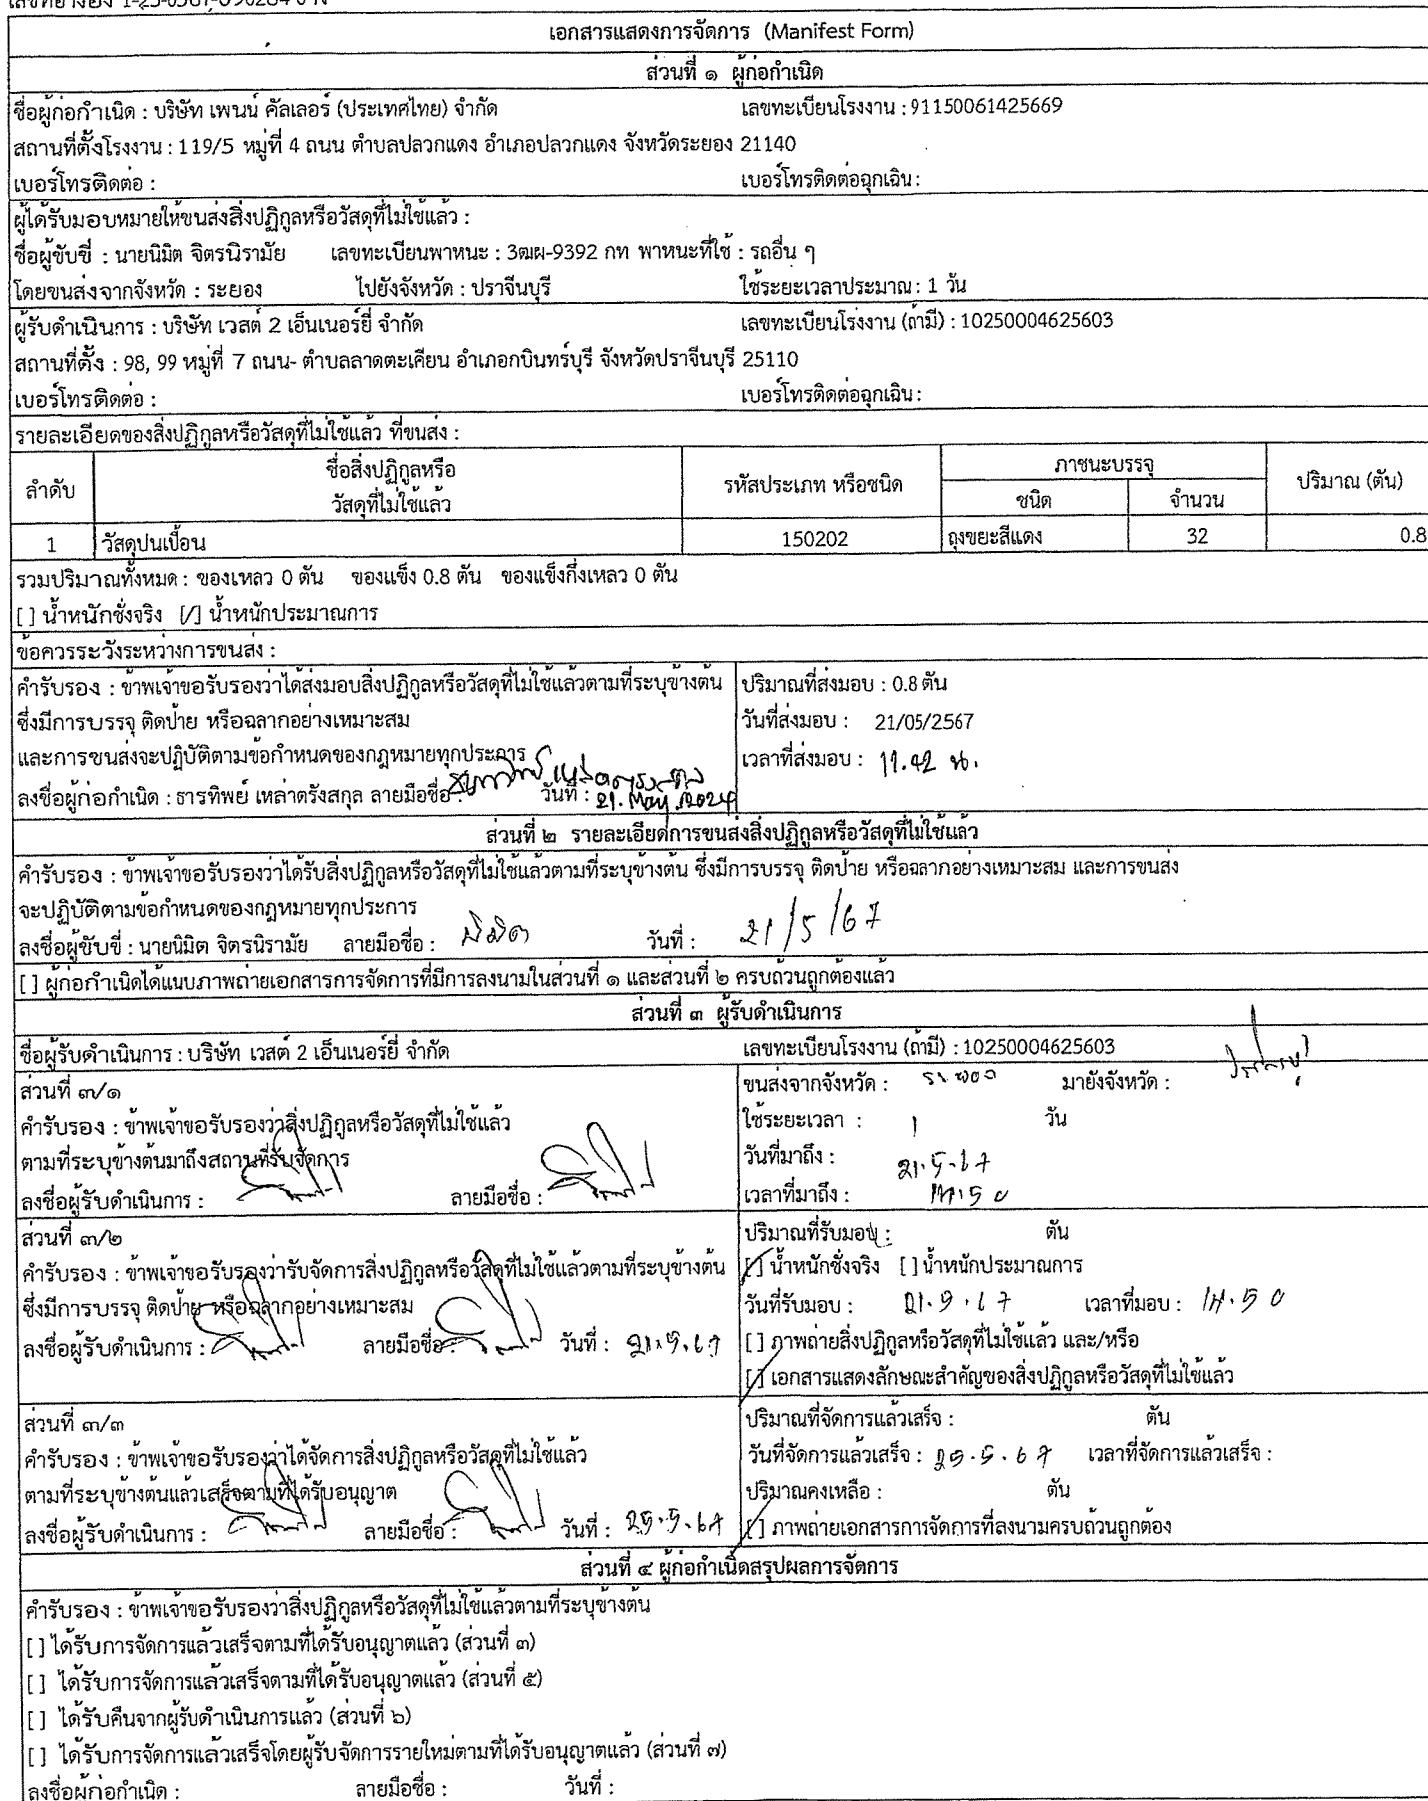 เอกสารแสดงการจัดการ (Manifest Form)
ส่วนที่ ๑ ผู้ก่อกำเนิด
ชื่อผู้ก่อกำเนิด : บริษัท เพนน์ คัลเลอร์ (ประเทศไทย) จำกัด เลขทะเบียนโรงงาน : 91150061425669
สถานที่ตั้งโรงงาน : 119/5 หมู่ที่ 4 ถนน ตำบลปลวกแดง อำเภอปลวกแดง จังหวัดระยอง 21140
เบอร์โทรติดต่อ : เบอร์โทรติดต่อฉุกเฉิน :
ผู้ได้รับมอบหมายให้ขนส่งสิ่งปฏิกูลหรือวัสดุที่ไม่ใช้แล้ว :
ชื่อผู้ขับขี่ : นายนิมิต จิตรนิรามัย เลขทะเบียนพาหนะ : 3ฒผ-9392 กท พาหนะที่ใช้ : รถอื่น ๆ
โดยขนส่งจากจังหวัด : ระยอง ไปยังจังหวัด : ปราจีนบุรี ใช้ระยะเวลาประมาณ : 1 วัน
ผู้รับดำเนินการ : บริษัท เวสต์ 2 เอ็นเนอร์ยี่ จำกัด เลขทะเบียนโรงงาน (ถ้ามี) : 10250004625603
สถานที่ตั้ง : 98, 99 หมู่ที่ 7 ถนน- ตำบลลาดตะเคียน อำเภอกบินทร์บุรี จังหวัดปราจีนบุรี 25110
เบอร์โทรติดต่อ : เบอร์โทรติดต่อฉุกเฉิน :
รายละเอียดของสิ่งปฏิกูลหรือวัสดุที่ไม่ใช้แล้ว ที่ขนส่ง :
ลำดับ ชื่อสิ่งปฏิกูลหรือ วัสดุที่ไม่ใช้แล้ว รหัสประเภท หรือชนิด ภาชนะบรรจุ ปริมาณ (ตัน)
ชนิด จำนวน
1 วัสดุปนเปื้อน 150202 ถุงขยะสีแดง 32 0.8
รวมปริมาณทั้งหมด : ของเหลว 0 ตัน ของแข็ง 0.8 ตัน ของแข็งกึ่งเหลว 0 ตัน
[ ] น้ำหนักชั่งจริง [/] น้ำหนักประมาณการ
ข้อควรระวังระหว่างการขนส่ง :
คำรับรอง : ข้าพเจ้าขอรับรองว่าได้ส่งมอบสิ่งปฏิกูลหรือวัสดุที่ไม่ใช้แล้วตามที่ระบุข้างต้น ปริมาณที่ส่งมอบ : 0.8 ตัน
ซึ่งมีการบรรจุ ติดป้าย หรือฉลากอย่างเหมาะสม วันที่ส่งมอบ : 21/05/2567
และการขนส่งจะปฏิบัติตามข้อกำหนดของกฎหมายทุกประการ เวลาที่ส่งมอบ : 11.42 น.
ลงชื่อผู้ก่อกำเนิด : ธารทิพย์ เหล่าดรังสกุล ลายมือชื่อ : วันที่ : 21.May.2024
ส่วนที่ ๒ รายละเอียดการขนส่งสิ่งปฏิกูลหรือวัสดุที่ไม่ใช้แล้ว
คำรับรอง : ข้าพเจ้าขอรับรองว่าได้รับสิ่งปฏิกูลหรือวัสดุที่ไม่ใช้แล้วตามที่ระบุข้างต้น ซึ่งมีการบรรจุ ติดป้าย หรือฉลากอย่างเหมาะสม และการขนส่ง
จะปฏิบัติตามข้อกำหนดของกฎหมายทุกประการ
ลงชื่อผู้ขับขี่ : นายนิมิต จิตรนิรามัย ลายมือชื่อ : นิมิต วันที่ : 21/5/67
[ ] ผู้ก่อกำเนิดได้แนบภาพถ่ายเอกสารการจัดการที่มีการลงนามในส่วนที่ ๑ และส่วนที่ ๒ ครบถ้วนถูกต้องแล้ว
ส่วนที่ ๓ ผู้รับดำเนินการ
ชื่อผู้รับดำเนินการ : บริษัท เวสต์ 2 เอ็นเนอร์ยี่ จำกัด เลขทะเบียนโรงงาน (ถ้ามี) : 10250004625603
ส่วนที่ ๓/๑ ขนส่งจากจังหวัด : ระยอง มายังจังหวัด :
คำรับรอง : ข้าพเจ้าขอรับรองว่าสิ่งปฏิกูลหรือวัสดุที่ไม่ใช้แล้ว ใช้ระยะเวลา : 1 วัน
ตามที่ระบุข้างต้นมาถึงสถานที่รับจัดการ วันที่มาถึง : 21.5.67
ลงชื่อผู้รับดำเนินการ : ลายมือชื่อ : เวลาที่มาถึง : 14.50
ส่วนที่ ๓/๒ ปริมาณที่รับมอบ : ตัน
คำรับรอง : ข้าพเจ้าขอรับรองว่ารับจัดการสิ่งปฏิกูลหรือวัสดุที่ไม่ใช้แล้วตามที่ระบุข้างต้น [/] น้ำหนักชั่งจริง [ ] น้ำหนักประมาณการ
ซึ่งมีการบรรจุ ติดป้าย หรือฉลากอย่างเหมาะสม วันที่รับมอบ : 21.5.67 เวลาที่มอบ : 14.50
ลงชื่อผู้รับดำเนินการ : ลายมือชื่อ : วันที่ : 21.5.67 [ ] ภาพถ่ายสิ่งปฏิกูลหรือวัสดุที่ไม่ใช้แล้ว และ/หรือ
[/] เอกสารแสดงลักษณะสำคัญของสิ่งปฏิกูลหรือวัสดุที่ไม่ใช้แล้ว
ส่วนที่ ๓/๓ ปริมาณที่จัดการแล้วเสร็จ : ตัน
คำรับรอง : ข้าพเจ้าขอรับรองว่าได้จัดการสิ่งปฏิกูลหรือวัสดุที่ไม่ใช้แล้ว วันที่จัดการแล้วเสร็จ : 25.5.67 เวลาที่จัดการแล้วเสร็จ :
ตามที่ระบุข้างต้นแล้วเสร็จตามที่ได้รับอนุญาต ปริมาณคงเหลือ : ตัน
ลงชื่อผู้รับดำเนินการ : ลายมือชื่อ : วันที่ : 25.5.67 [/] ภาพถ่ายเอกสารการจัดการที่ลงนามครบถ้วนถูกต้อง
ส่วนที่ ๔ ผู้ก่อกำเนิดสรุปผลการจัดการ
คำรับรอง : ข้าพเจ้าขอรับรองว่าสิ่งปฏิกูลหรือวัสดุที่ไม่ใช้แล้วตามที่ระบุข้างต้น
[ ] ได้รับการจัดการแล้วเสร็จตามที่ได้รับอนุญาตแล้ว (ส่วนที่ ๓)
[ ] ได้รับการจัดการแล้วเสร็จตามที่ได้รับอนุญาตแล้ว (ส่วนที่ ๕)
[ ] ได้รับคืนจากผู้รับดำเนินการแล้ว (ส่วนที่ ๖)
[ ] ได้รับการจัดการแล้วเสร็จโดยผู้รับจัดการรายใหม่ตามที่ได้รับอนุญาตแล้ว (ส่วนที่ ๗)
ลงชื่อผู้ก่อกำเนิด : ลายมือชื่อ : วันที่ :